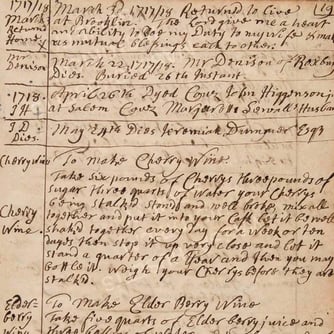 1717/18 March 1. 1717/18 Returnd to live [19
March Returnd Home at Brooklin. The Lord give me a heart
and ability to doe my Duty to my wife & make
us mutual blessings each to other.
Mr Denison March 22. 1717/18 Mr Denison of Roxbury
Dies. Buried 26th Instant.
1718. J H. April 26th Dyed Couz John Higginson jr
at Salem Couz Margarett Sewall Husband
J D Dies. May 24th Dies Jeremiah Dummer Esqr
Cherry Wine To make Cherry Wine.
Take six pounds of Cherrys three pounds of
sugar three quarts of water your Cherrys
being stalkd stond and well broke, mix all
Cherry together and put it into your Cask let it be well
Wine. shak'd together every day for a week or ten
dayes then stop it up very close and let it
stand a quarter of a year and then you may
bottle it. weigh your Cherrys before they are
stalkd.
Elder- To Make Elder Berry Wine
berry Take five quarts of Elder berry juice and
Wine three